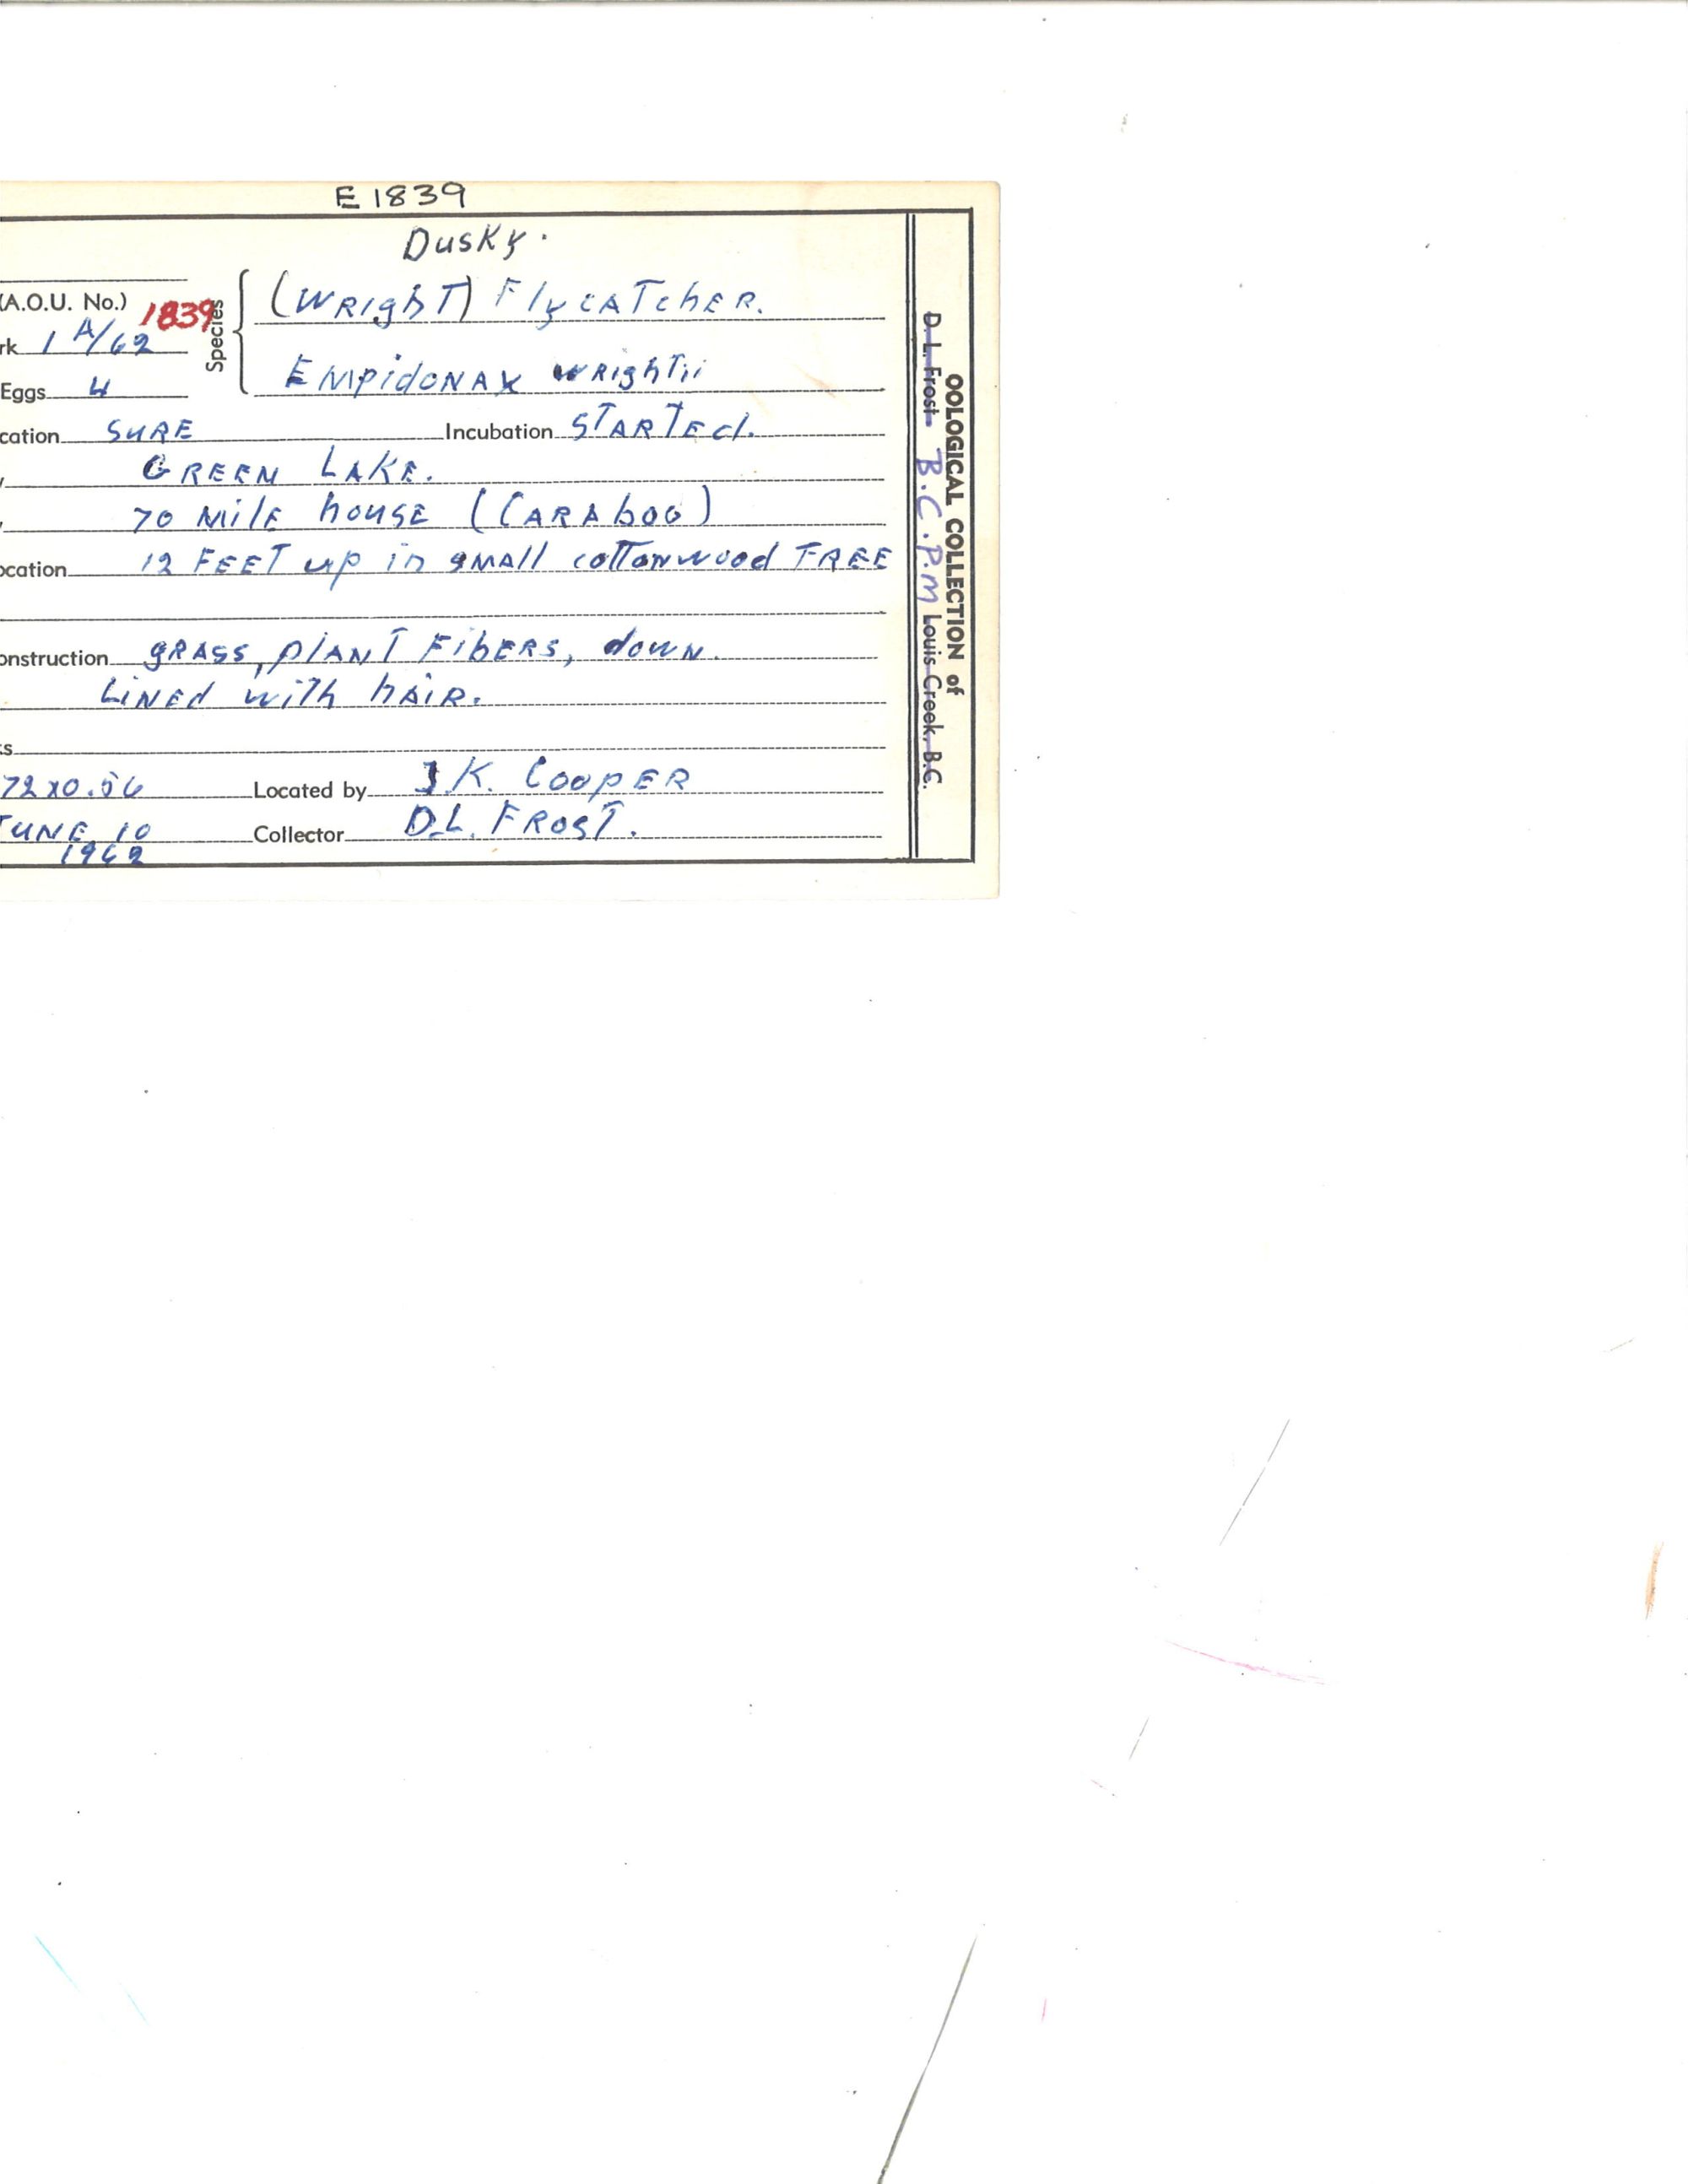 E 1839
Dusky.
(A.O.U. No.) 1839
Species
(WRighT) FlycATchER.
rk 1 A/62
EMpidoNAX wRighTii
Eggs 4
cation SuRE Incubation STARTEd.
GREEN LAKE.
70 MilE house (CARAboo)
ocation 12 FEET up in sMAll cottonwood TREE
onstruction gRASS, plANT FibERS, down.
LiNEd with hAiR.
s
72 x0.56 Located by J.K. CoopER
JUNE 10 Collector D.L. FROST.
1962
OOLOGICAL COLLECTION of
D. L. Frost B.C.P.M Louis Creek, B.C.